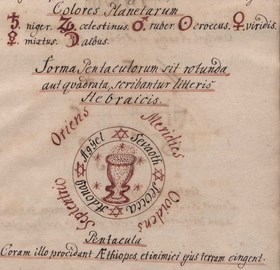 Colores Planetarum
♄ niger. ♃ celestinus ♂ ruber ☉ croceus. ♀ viridis.
☿ mixtus. ☽ albus.
Forma Pentaculorum sit rotunda,
aut quadrata, scribantur litteris
Hebraicis.
Oriens
Meridies
Occidens
Septentrio
Aglyel
Sevaoth
Adonay
Pentacula
Coram illo procidant Æthiopes, et inimici ejus terram cingent.